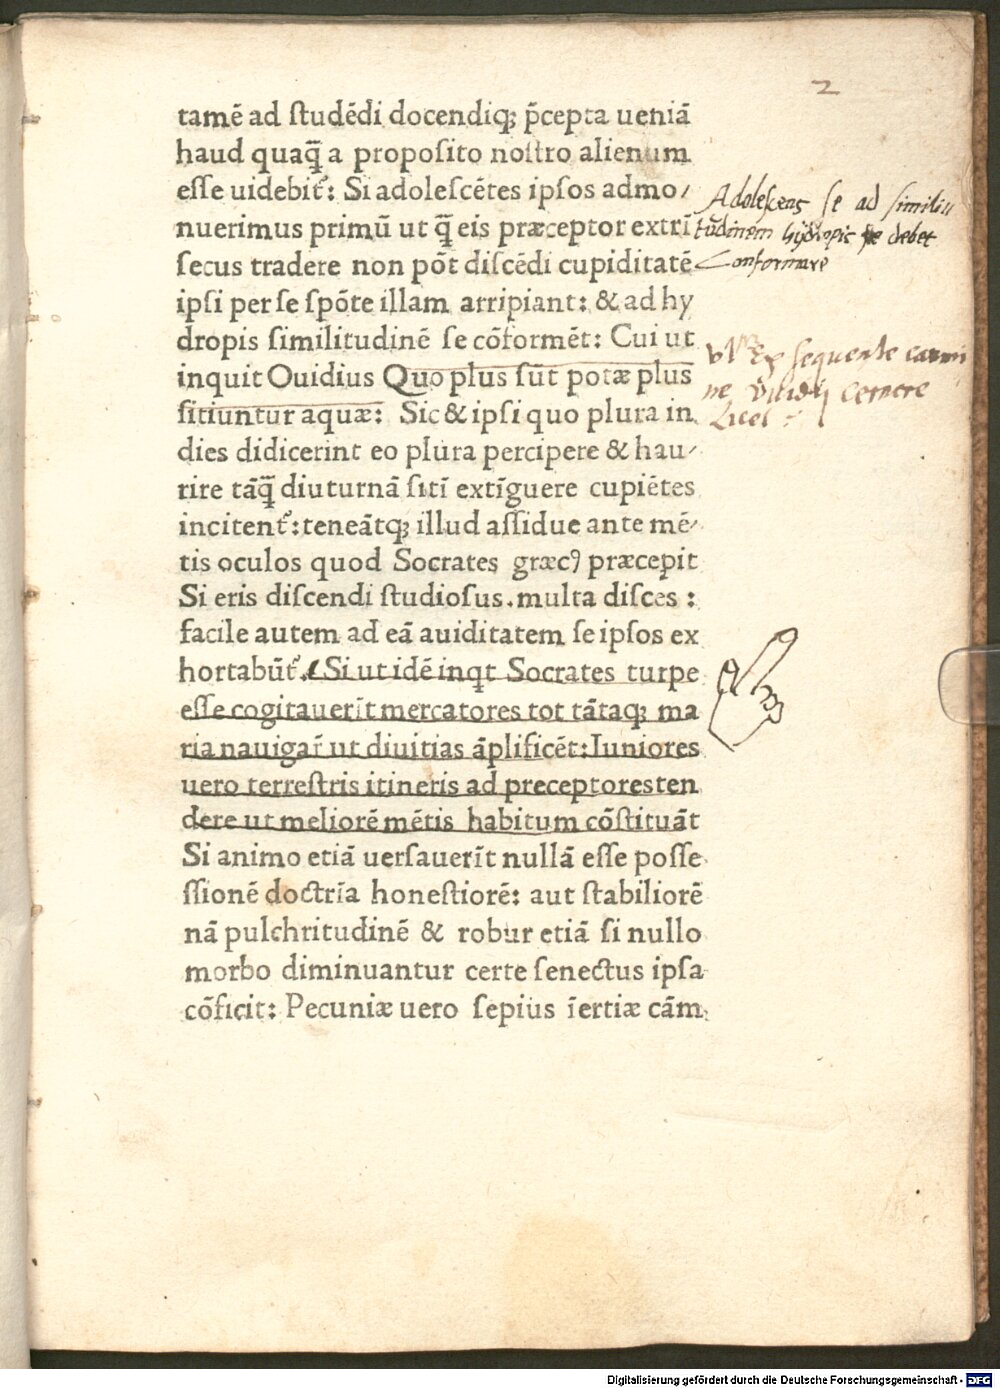 2
tamē ad ſtudēdi docendiq; p̄cepta ueniā
haud quaq̄ a propoſito noſtro alienum
eſſe uidebit᷑: Si adoleſcētes ipſos admo⸗
nuerimus primū ut q̄ eis præceptor extri
ſecus tradere non pōt diſcēdi cupiditatē
ipſi per ſe ſpōte illam arripiant: & ad hy
dropis ſimilitudinē ſe cōformēt: Cui ut
inquit Ouidius Quo plus ſūt potæ plus
ſitiuntur aquæ: Sic & ipſi quo plura in
dies didicerint eo plura percipere & hau⸗
rire tāq̄ diuturnā ſitī extīguere cupiētes
incitent᷑: teneātq; illud aſſidue ante mē⸗
tis oculos quod Socrates græcꝰ præcepit
Si eris diſcendi ſtudioſus. multa diſces :
facile autem ad eā auiditatem ſe ipſos ex
hortabūt᷑. Si ut idē inqt Socrates turpe
eſſe cogitauerīt mercatores tot tātaq; ma
ria nauigar᷑ ut diuitias āplificēt: Iuniores
uero terreſtris itineris ad preceptores ten
dere ut meliorē mētis habitum cōſtituāt
Si animo etiā uerſauerīt nullā eſſe poſſe
ſſionē doctrīa honeſtiorē: aut ſtabiliorē
nā pulchritudinē & robur etiā ſi nullo
morbo diminuantur certe ſenectus ipſa
cōficit: Pecuniæ uero ſepius īertiæ cām
Adoleſcens ſe ad ſimili⸗
tudinem hydropis debet
Conformare
Ex ſequente carmi
ne Ouidij cernere
Licet
Digitalisierung gefördert durch die Deutsche Forschungsgemeinschaft - DFG